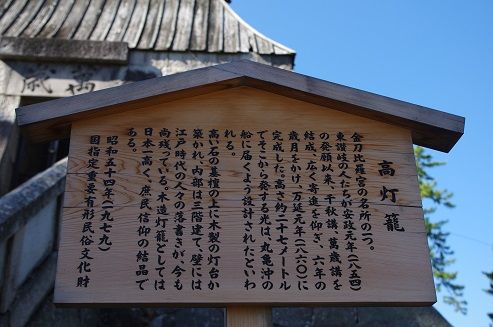 萬歳
高灯籠
金刀比羅宮の名所の一つ。
東讃岐の人たちが安政元年(一八五四)
の発願以来、千秋講、萬歳講を
結成、広く寄進を仰ぎ、六年の
歳月をかけ、万延元年(一八六〇)に
完成した。高さ約二十七メートル
でそこから発する光は、丸亀沖の
船に届くよう設計されたといわ
れる。
高い石の基壇の上に木製の灯台が
築かれ、内部は三階建て、壁には
江戸時代の人々の落書きが、今も
尚残っている。木造灯籠としては
日本一高く、庶民信仰の結晶で
ある。
昭和五十四年(一九七九)
国指定重要有形民俗文化財